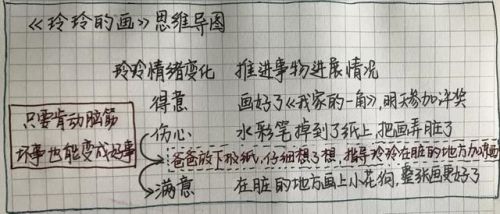 《玲玲的画》思维导图
玲玲情绪变化 推进事物进展情况
得意 画好了《我家的一角》,明天参加评奖
只要肯动脑筋
坏事也能变成好事
伤心 水彩笔掉到了纸上,把画弄脏了
爸爸放下报纸,仔细想了想,指导玲玲在脏的地方加
满意 在脏的地方画上小花狗,整张画更好了